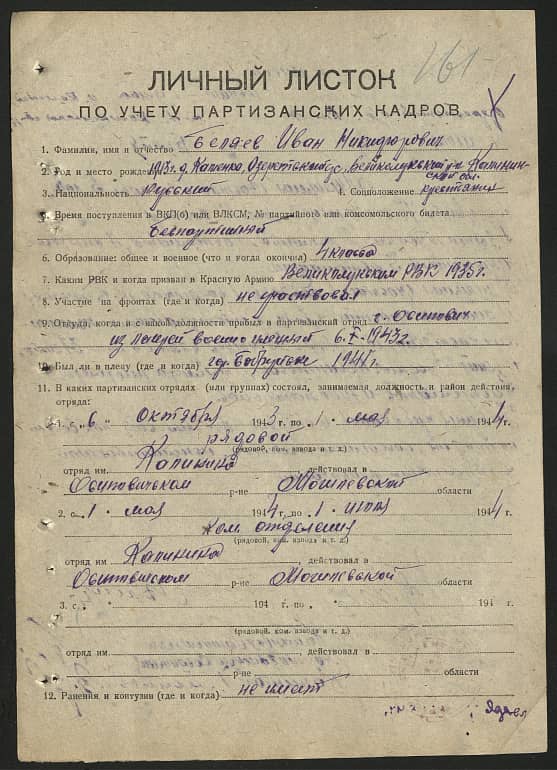 261
ЛИЧНЫЙ ЛИСТОК
ПО УЧЕТУ ПАРТИЗАНСКИХ КАДРОВ
1. Фамилия, имя и отчество Беляев Иван Никифорович
2. Год и место рождения 1913 г. д. Великолукский р-н Калинин-
ской обл.
3. Национальность Русский 4. Соцположение крестьянин
5. Время поступления в ВКП(б) или ВЛКСМ, № партийного или комсомольского билета
Беспартийный
6. Образование: общее и военное (что и когда окончил) 4 класса
7. Каким РВК и когда призван в Красную Армию Великолукским РВК 1935 г.
8. Участие на фронтах (где и когда) не участвовал
9. Откуда, когда и с какой должности прибыл в партизанский отряд г. Осипович
из лагерей военнопленный 6.X-1943 г.
10. Был ли в плену (где и когда) гор. Бобруйск 1941 г.
11. В каких партизанских отрядах (или группах) состоял, занимаемая должность и район действия,
отряда:
1. с „ 6 „ октября 1943 г. по „ 1 „ мая 1944 г.
рядовой
(рядовой, ком. взвода и т. д.)
отряд им. Калинина действовал в
Осиповичском р-не Могилевской области
2. с „ 1 „ мая 1944 г. по „ 1 „ июля 1944 г.
Ком. отделения
(рядовой, ком. взвода и т. д.)
отряд им. Калинина действовал в
Осиповичском р-не Могилевской области
3. с „ „ 194 г. по „ „ 194 г.
(рядовой, ком. взвода и т. д.)
отряд им. действовал в
р-не области
12. Ранения и контузии (где и когда) не имеет